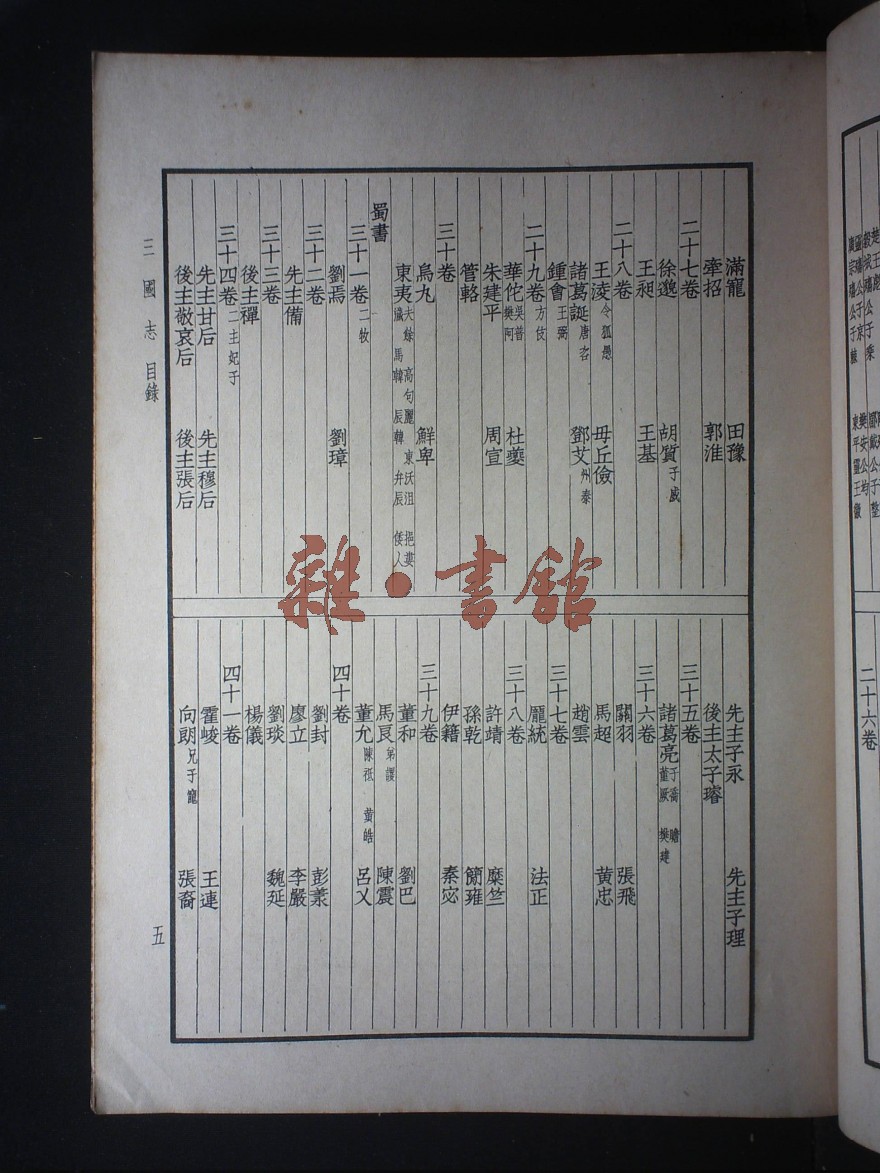 滿寵 田豫
牽招 郭淮
二十七卷
徐邈 胡質子威
王昶 王基
二十八卷
王淩令狐愚 毋丘儉
諸葛誕唐咨 鄧艾州泰
鍾會王弼
二十九卷方伎
華佗吳普樊阿 杜夔
朱建平 周宣
管輅
三十卷
烏九 鮮卑
東夷夫餘 高句麗 東沃沮 挹婁 濊 馬韓 辰韓 弁辰 倭人
蜀書
三十一卷二牧
劉焉 劉璋
三十二卷
先主備
三十三卷
後主禪
三十四卷二主妃子
先主甘后 先主穆后
後主敬哀后 後主張后
先主子永 先主子理
後主太子璿
三十五卷
諸葛亮子喬 瞻 董厥 樊建
三十六卷
關羽 張飛
馬超 黄忠
趙雲
三十七卷
龐統 法正
三十八卷
許靖 糜竺
孫乾 簡雍
伊籍 秦宓
三十九卷
董和 劉巴
馬良弟謖 陳震
董允陳祗 黄皓 呂乂
四十卷
劉封 彭羕
廖立 李嚴
劉琰 魏延
楊儀
四十一卷
霍峻 王連
向朗兄子寵 張裔
三國志 目錄
五
二十六卷
雜·書館